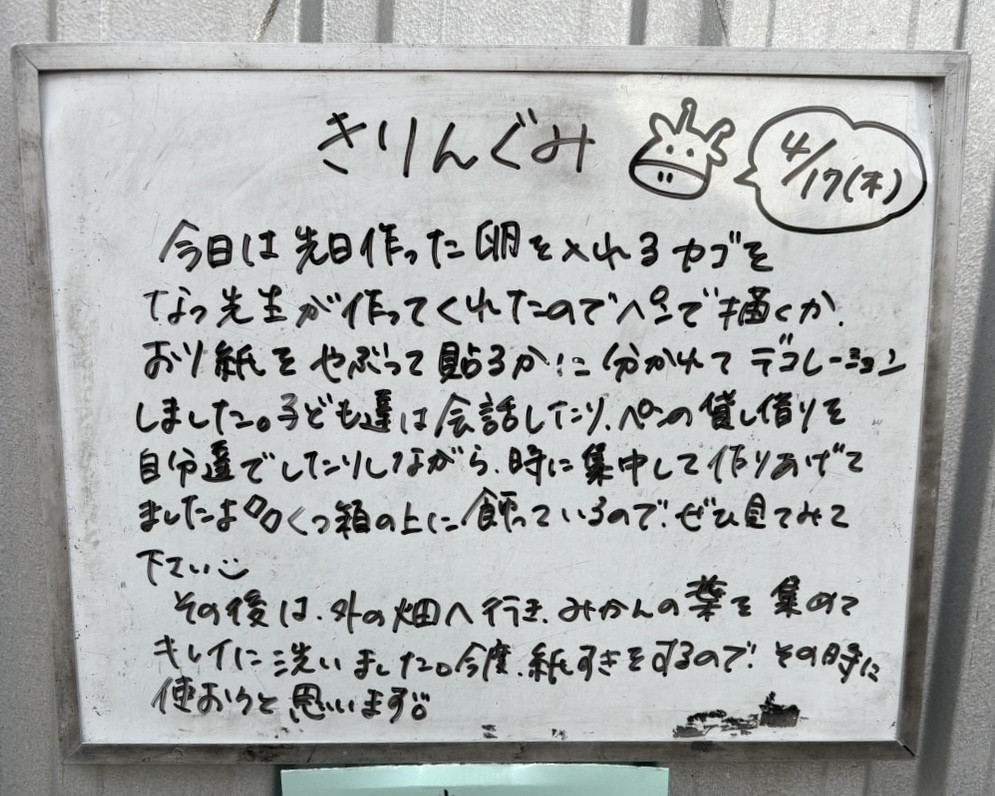 きりんぐみ
4/17(木)
今日は先日作った卵を入れるカゴを
なつ先生が作ってくれたのでペンで描くか、
おり紙をやぶって貼るかに分かれてデコレーション
しました。子ども達は会話したり、ペンの貸し借りを
自分達でしたりしながら、時に集中して作りあげて
ましたよ!!くつ箱の上に飾っているので、ぜひ見てみて
下さい
その後は、外の畑へ行き、みかんの葉を集めて
キレイに洗いました。今度、紙すきをするので、その時に
使おうと思います。